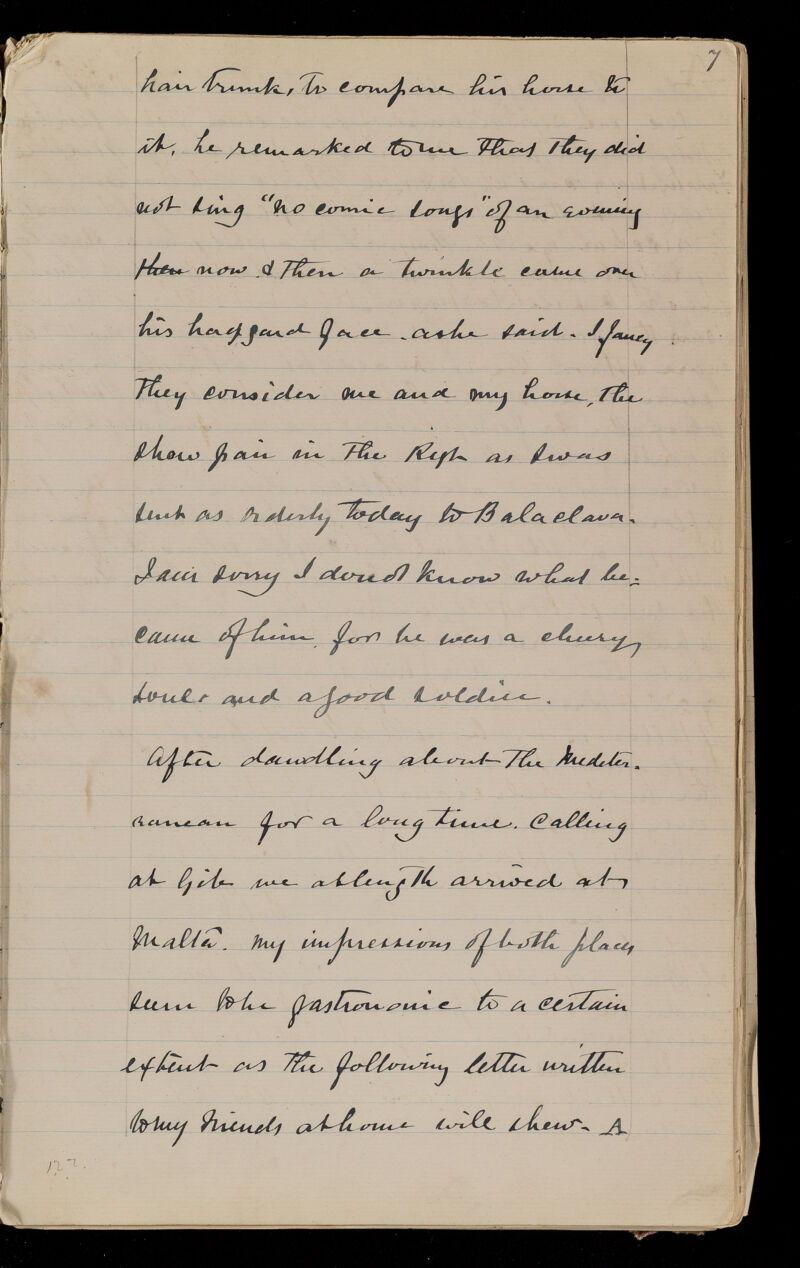 7
hair trunk, to compare his horse to
it. he remarked to me that they did
not sing "no comic songs" of an evening
then now & then a twinkle came over
his haggard face. as he said. I fancy
they consider me and my horse, the
show pair in the Regt as I was
sent as orderly today to Balaclava.
I am sorry I do not know what be=
came of him, for he was a cheery
soul and a good soldier.
After dawdling about the Mediter-
ranean for a long time. Calling
at Gib we at length arrived at
Malta. my impressions of both places
seem to be gastronomic to a certain
extent as the following letter written
to my friends at home will shew. A
122.